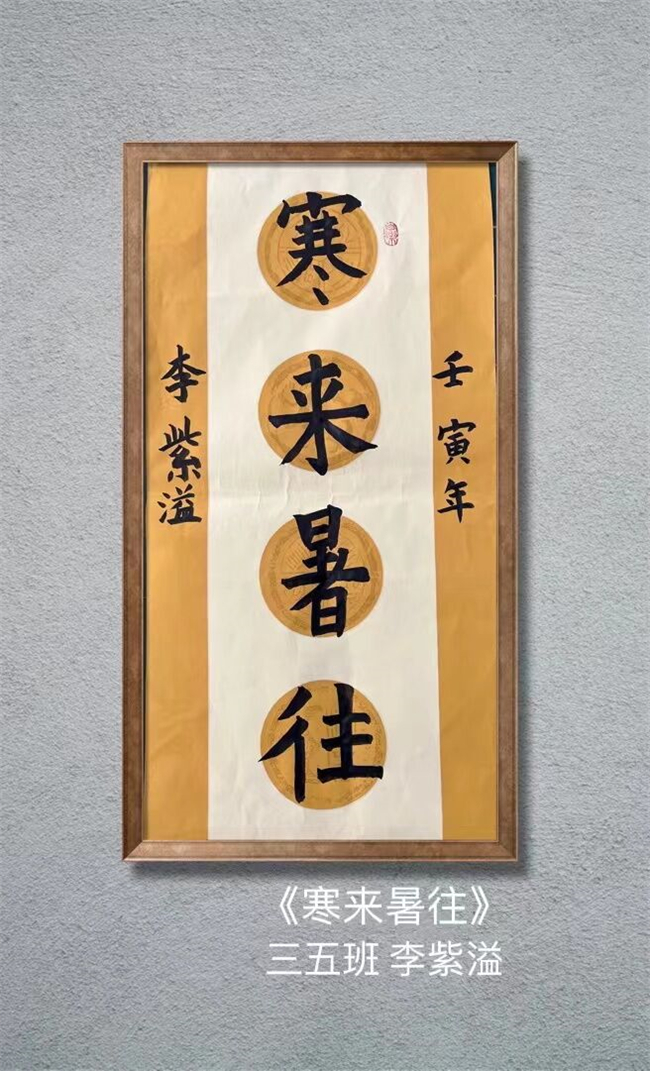 壬寅年
寒来暑往
李紫溢
《寒来暑往》
三五班 李紫溢